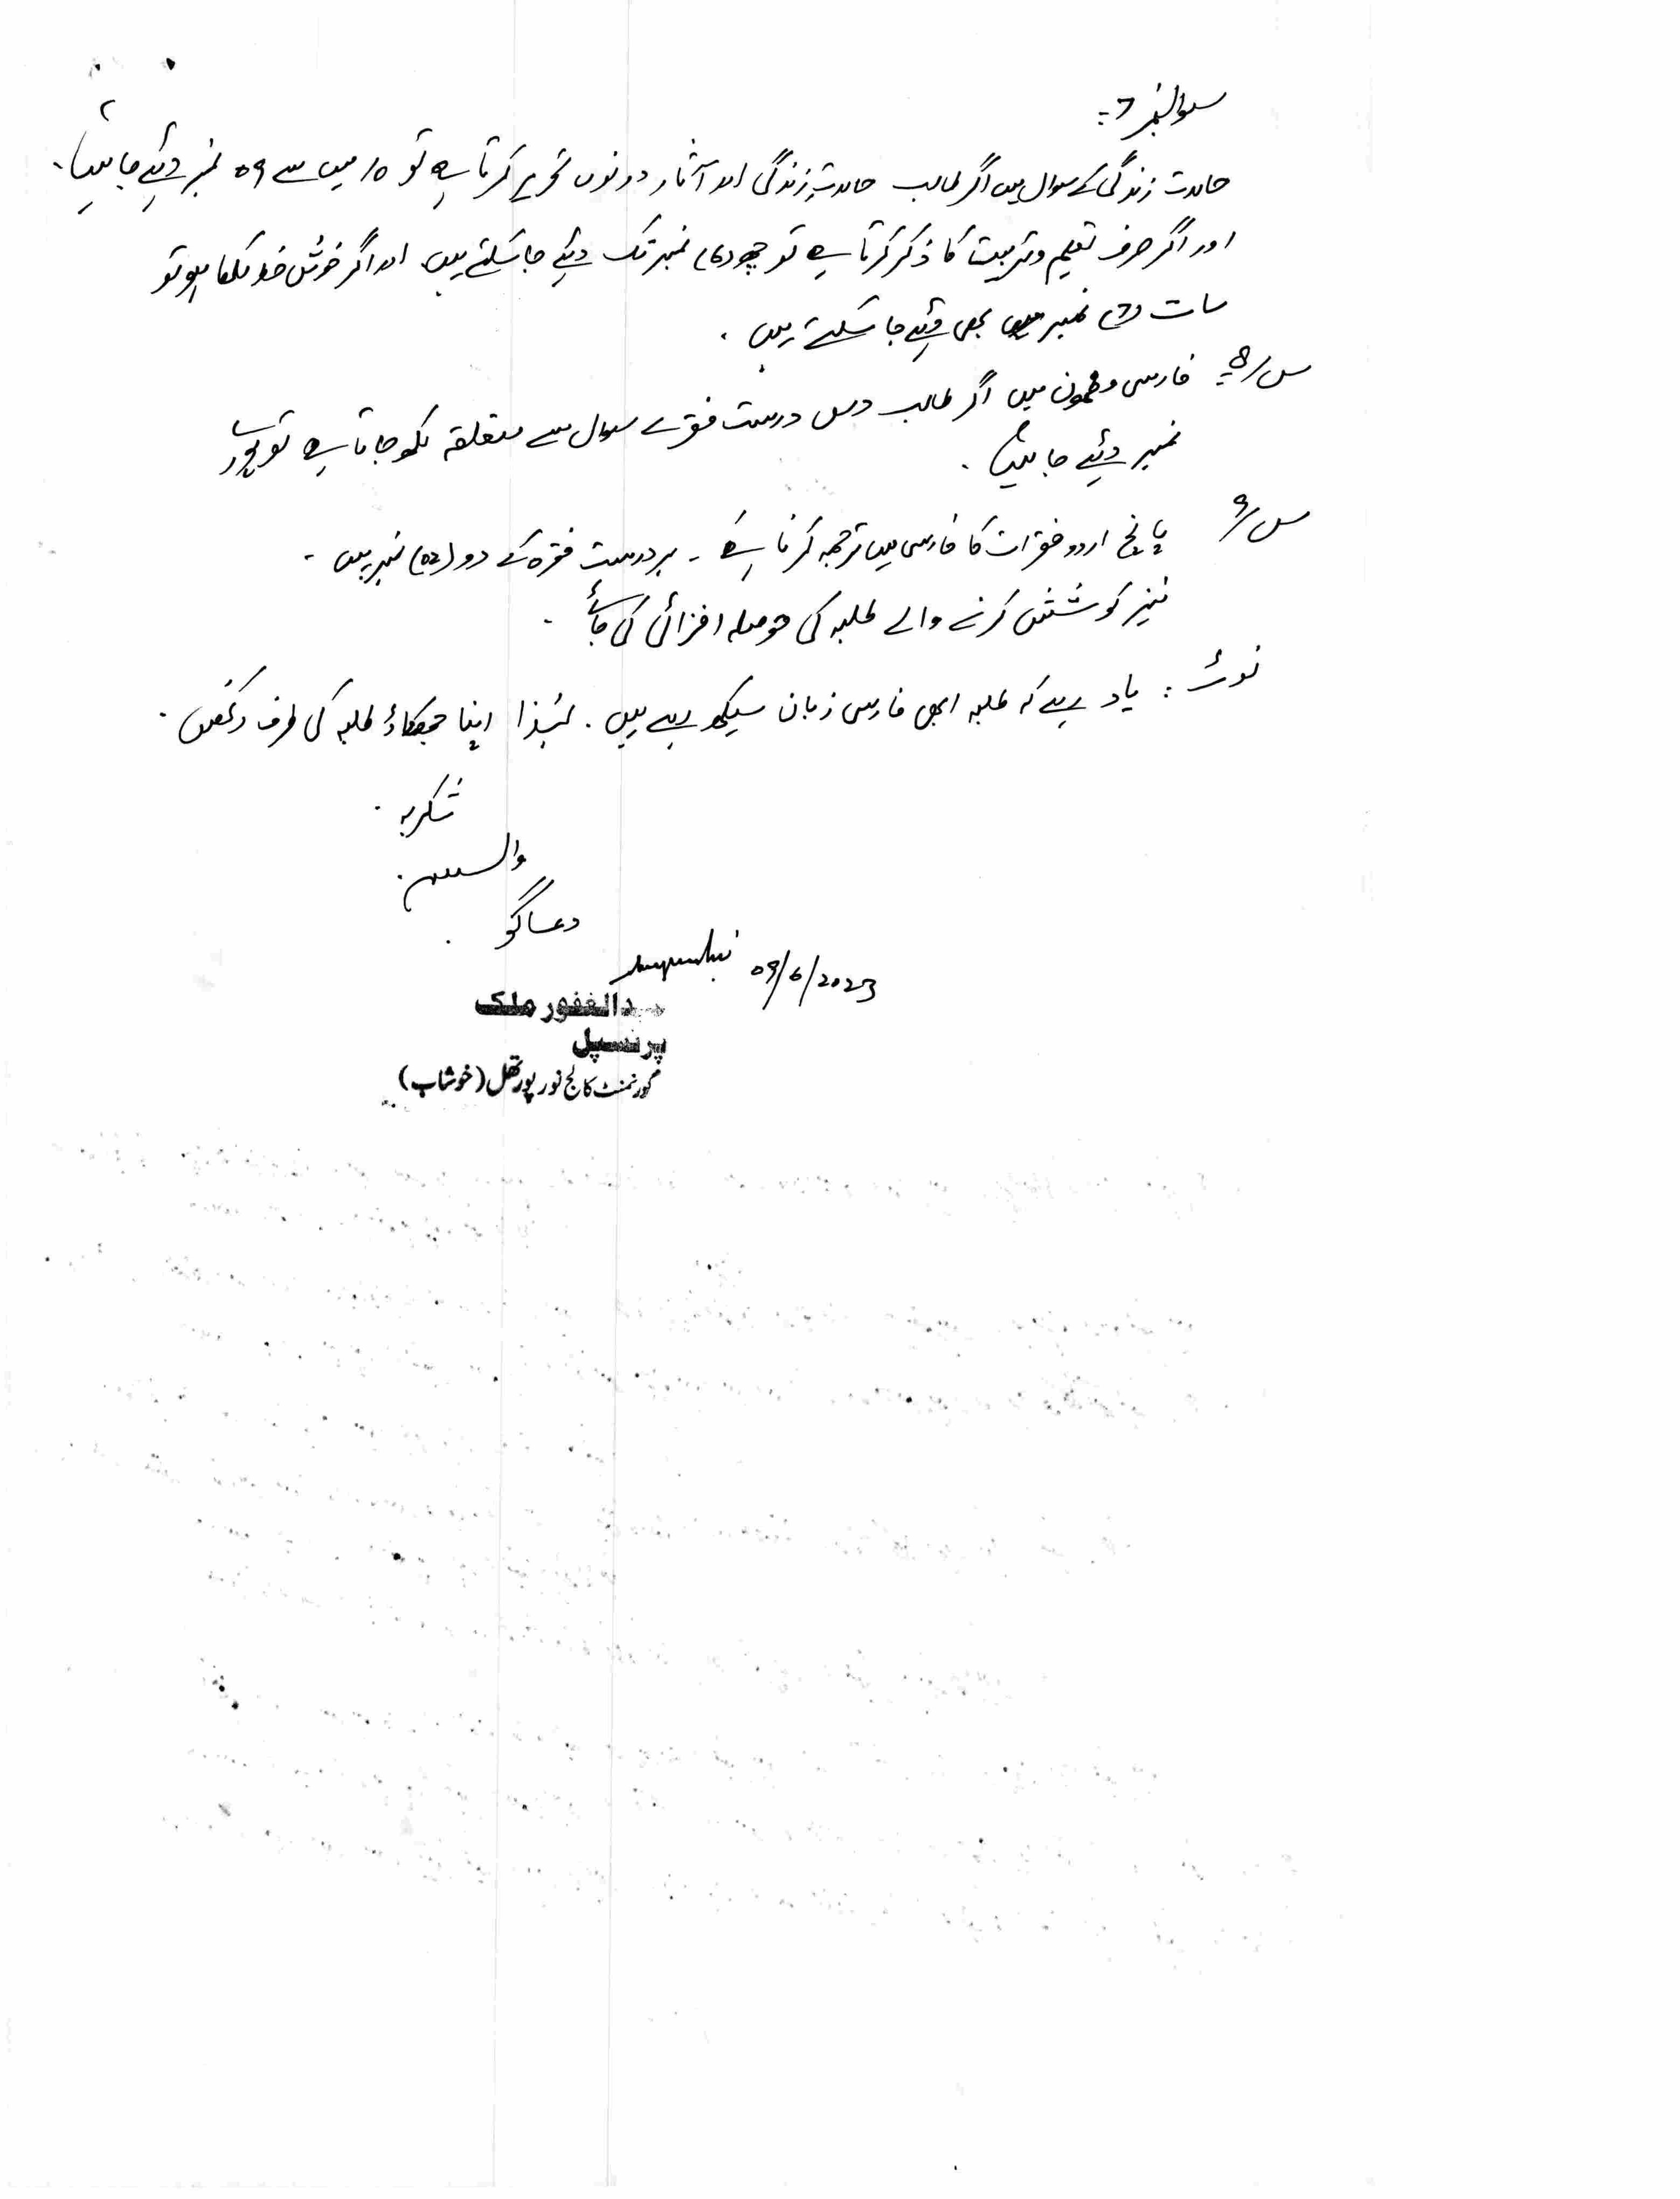 سوال نمبر 7:
حالات زندگی کے سوال میں اگر طالب حالاتِ زندگی اور آثار دونوں تحریر کرتا ہے تو 10 میں سے 09 نمبر دیئے جائیں۔
اور اگر صرف تعلیم و تربیت کا ذکر کرتا ہے تو چھ (6) نمبر تک دیئے جا سکتے ہیں اور اگر خوش خط لکھا ہو تو
سات (7) نمبر بھی دیئے جا سکتے ہیں۔
س/8: فارسی مضمون میں اگر طالب دس درست فقرے سوال سے متعلقہ لکھ جاتا ہے تو پورے
نمبر دیئے جائیں۔
س/9 پانچ اردو فقرات کا فارسی میں ترجمہ کرنا ہے۔ ہر درست فقرہ کے دو (02) نمبر ہیں۔
نیز کوشش کرنے والے طلبہ کی حوصلہ افزائی کی جائے۔
نوٹ: یاد رہے کہ طلبہ ابھی فارسی زبان سیکھ رہے ہیں۔ لہٰذا اپنا جھکاؤ طلبہ کی طرف رکھیں۔
شکریہ۔
والسلام۔
دعا گو۔
09/6/2023
عبدالغفور ملک
پرنسپل
گورنمنٹ کالج نور پور تھل (خوشاب)